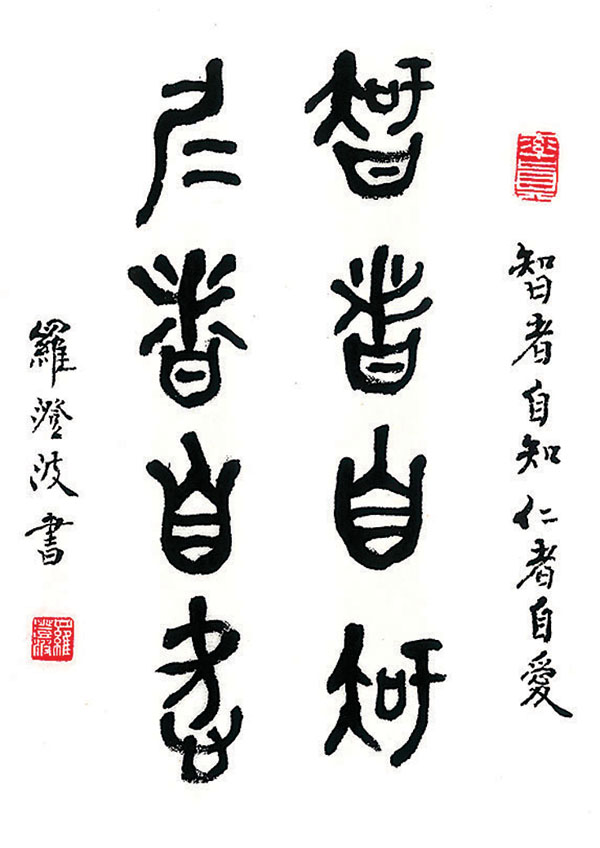 智者自知仁者自愛
智者自知
仁者自愛
羅澄波書
羅澄波